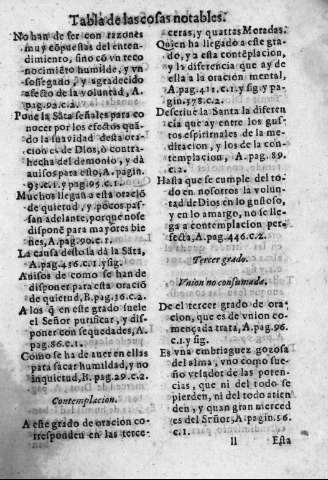 Tabla de las cosas notables.
No han de ser con razones
muy cōpuestas del enten-
dimiento, sino cō vn reco
nocimiēto humilde, y vn
sossegado, y agradecido
afecto de la voluntad, A.
pag.92.c.2.
Pone la Sāta señales para co
nocer por los efectos quā-
do la suavidad desta ora-
ciō es de Dios, ò contra-
hecha del demonio, y dà
auisos para esto, A. pagin.
93.c.1.y pag.95.c.1.
Muchos llegan a esta oraciō
de quietud, y pocos pas-
san adelante, porque nose
disponē para mayores bie
nes, A.pag.90.c.1.
La causa desto la dà la Sāta,
A.pag.456.c.1.y sig.
Auisos de como se han de
disponer para esta oraciō
de quietud, B. pag.36.c.2.
A los q̄ en este grado suele
el Señor purificar, y dis-
poner con sequedades, A.
pag.86.c.1.
Como se ha de auer en ellas
para sacar humildad, y no
inquietud, B. pag.29.c.2.
Contemplacion.
A este grado de oracion co-
rresponden en las terce-
ceras, y quattras Moradas.
Quien ha llegado a este gra-
do, y a esta contēplacion,
y la diferencia que ay de
ella a la oración mental,
A.pag.421.c.1.y sig.y pa-
gin.578.c.2.
Descriue la Santa la diferen
cia que ay entre los gus-
tos espirituales de la me-
ditacion, y los de la con-
templacion, A. pag. 89.
c.2.
Hasta que se cumple del to-
do en nosotros la volun-
tad de Dios en lo gustoso,
y en lo amargo, no se lle-
ga a contemplacion per-
fecta, A.pag.446.c.2.
Tercer grado.
Vnion no consumada.
De el tercer grado de ora-
cion, que es de vnion co-
mençada trata, A.pag.96.
c.1.y sig.
Es vna embriaguez gozosa
del alma, vno como sue-
ño velador de las poten-
cias, que ni del todo se
pierden, ni del todo atien
den, y quan gran merced
es del Señor, A.pagin.56.
c.1.
ll Esta